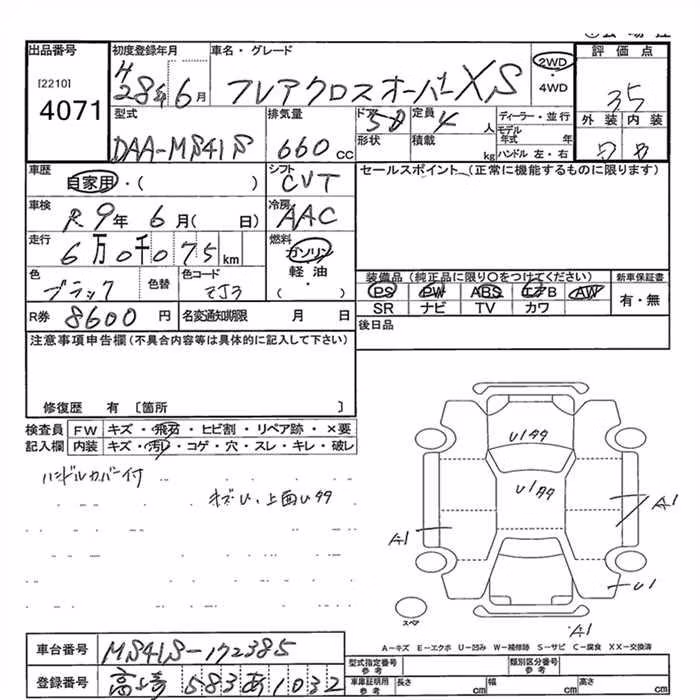 出品番号
[2210]
4071
初度登録年月
4
28年 6月
車名・グレード
フレアクロスオーバー XS
2WD
・
4WD
評価点
3.5
外装 内装
型式
DAA-MS41S
排気量
660 cc
ドア
5D
形状
定員
4 人
積載
kg
ディーラー・並行
モデル
年式 年
ハンドル 左・右
車歴
自家用・( )
シフト
CVT
セールスポイント (正常に機能するものに限ります)
車検
R 9年 6月( 日)
冷房
AAC
走行
6万0千075km
燃料
ガソリン
軽油
( ・ )
色
ブラック
色替
色コード
ZJ3
装備品 (純正品に限り○をつけてください)
新車保証書
PS PW ABS エアB AW
SR ナビ TV カワ
有・無
R券 8600 円
名変通知期限 月 日
後日品
注意事項申告欄(不具合内容等は具体的に記入して下さい)
修復歴 有 〔箇所 〕
検査員
記入欄
FW キズ・飛石・ヒビ割・リペア跡・×要
内装 キズ・汚れ・コゲ・穴・スレ・キレ・破レ
ハンドルカバー付
キズU、上面Uタタ
U1タタ
U1タタ
A1
A1
U1
スペア
A1
A-キズ E-エクボ U-凹み W-補修跡 S-サビ C-腐食 XX-交換済
車台番号 MS41S-172385
登録番号 高崎 583 あ 1032
型式指定番号
参考
類別区分番号
参考
車庫証明用
参考
長さ cm
幅 cm
高さ cm